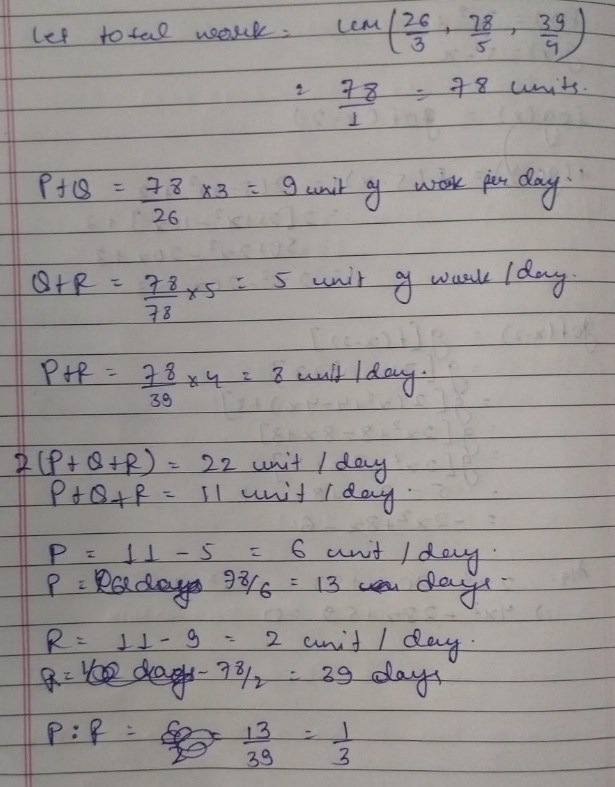 Let total work = LCM (26/3, 78/5, 39/4)
= 78/1 = 78 units.
P+Q = 78/26 × 3 = 9 unit of work per day.
Q+R = 78/78 × 5 = 5 unit of work / day.
P+R = 78/39 × 4 = 8 unit / day.
2(P+Q+R) = 22 unit / day
P+Q+R = 11 unit / day.
P = 11 - 5 = 6 unit / day.
P = 78/6 = 13 days.
R = 11 - 9 = 2 unit / day.
R = 78/2 = 39 days
P : R = 13/39 = 1/3